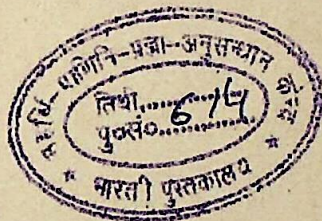 महर्षि-पाणिनि-प्रज्ञा-अनुसन्धान केन्द्र
तिथी............
पु०सं० 614
* भारती पुस्तकालय *